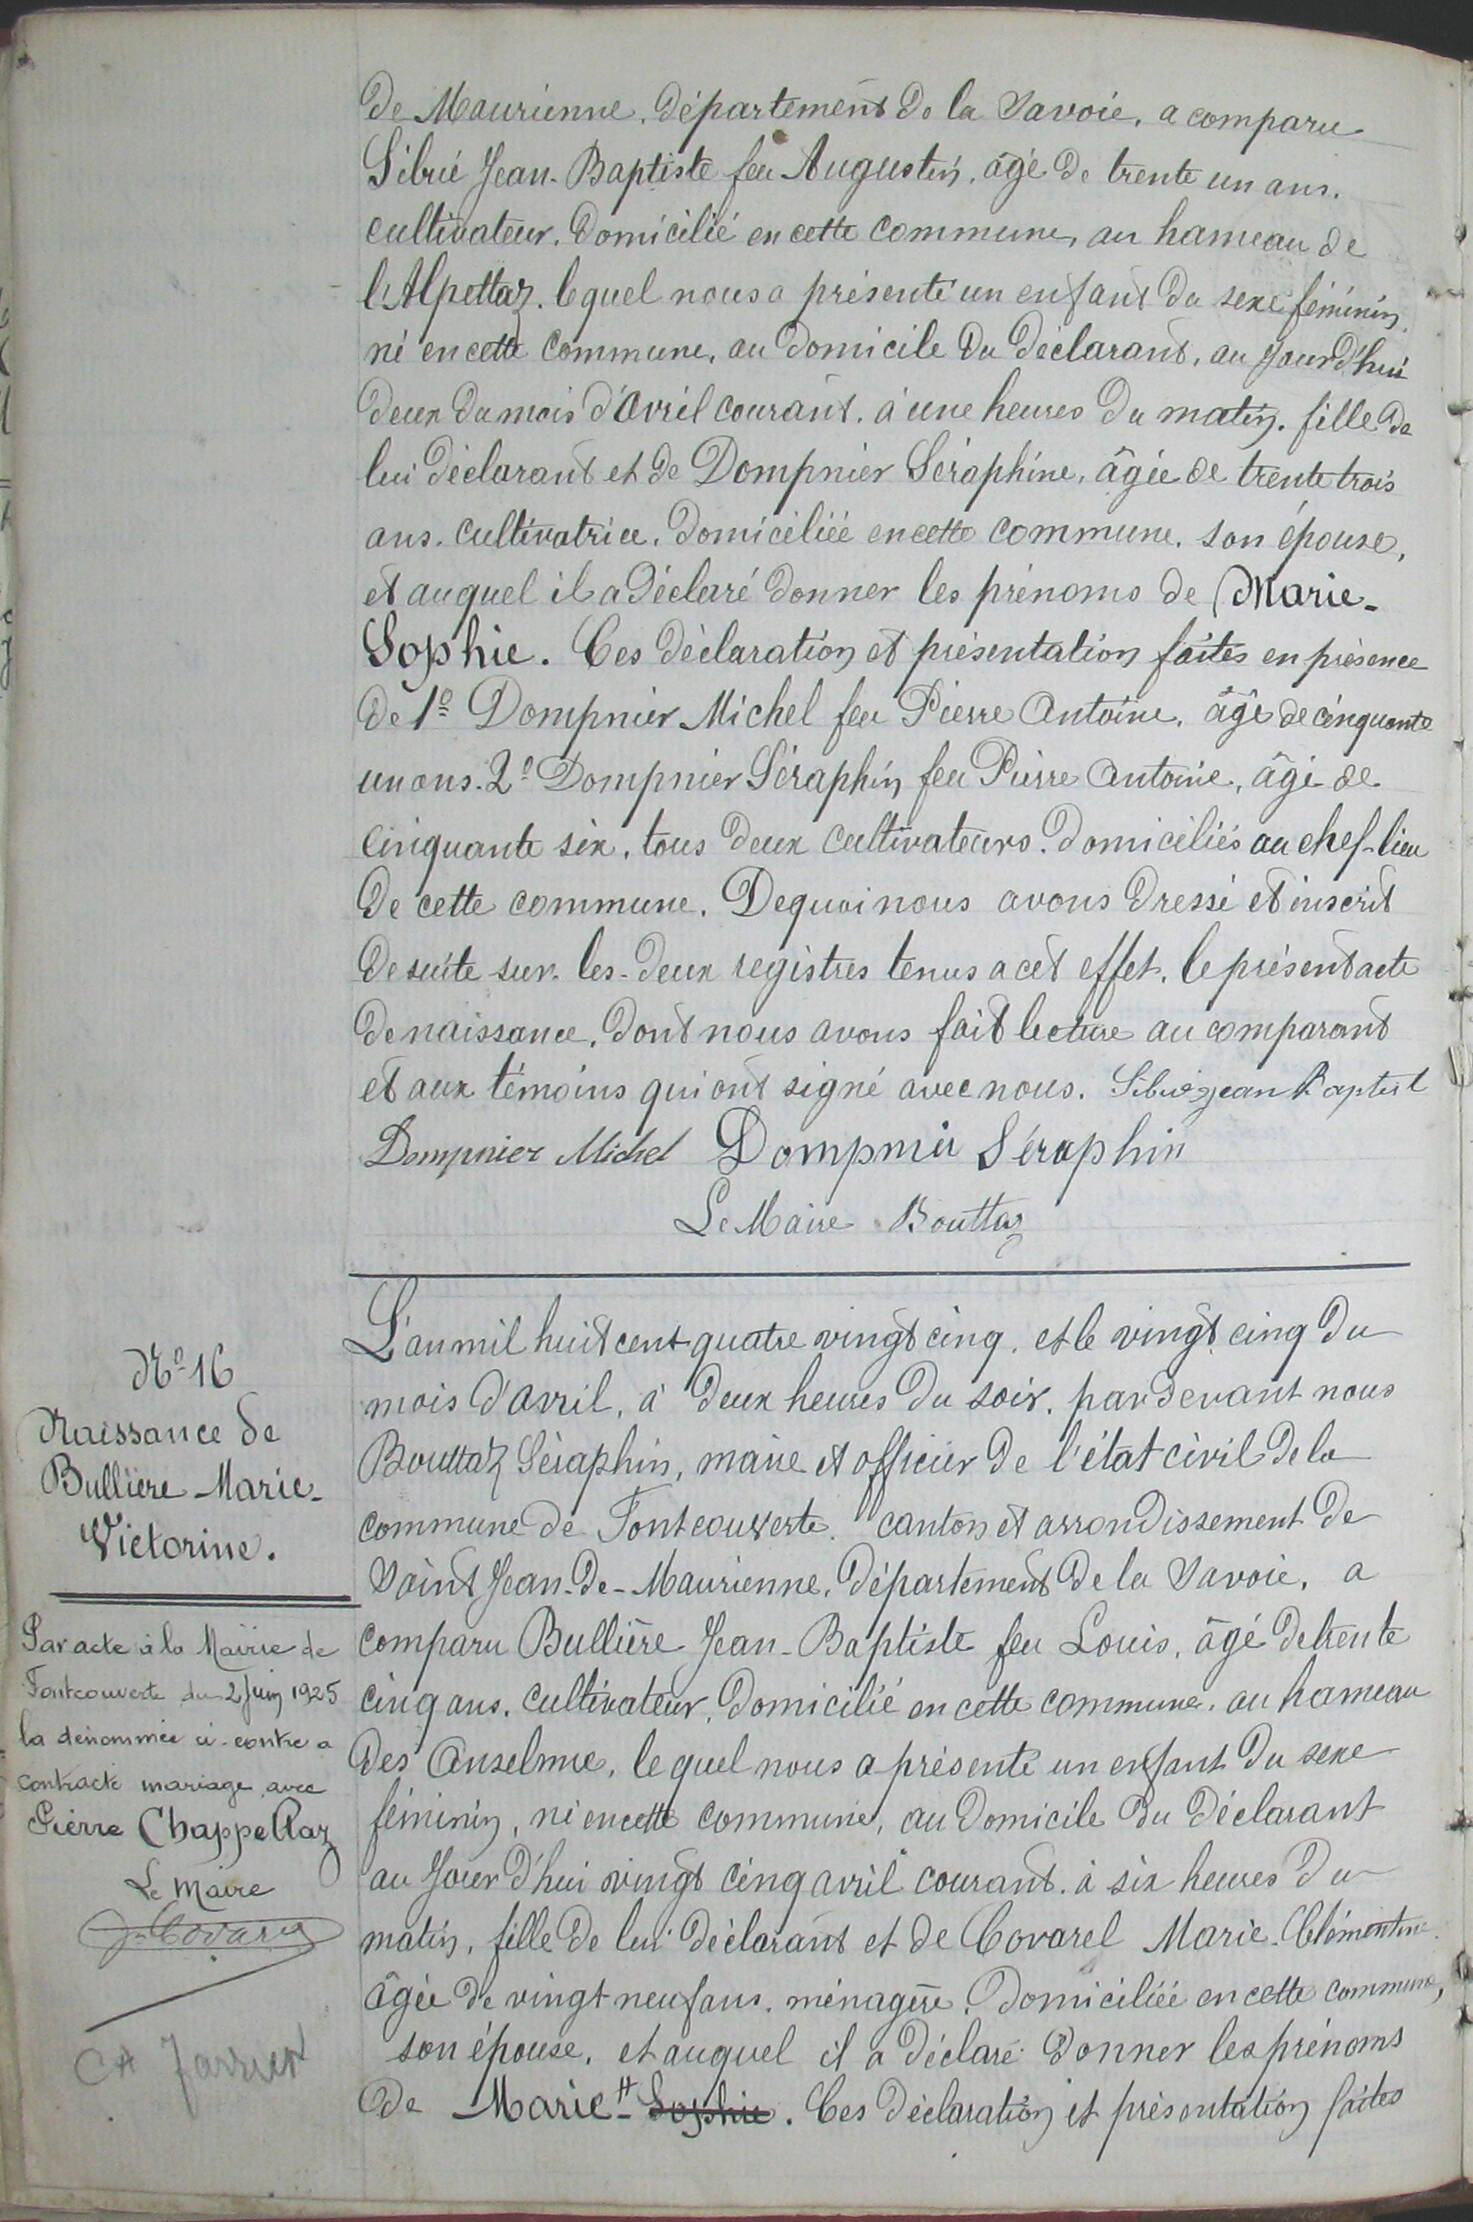 de Maurienne, département de la Savoie, a comparu
Sibué Jean-Baptiste feu Augustin, âgé de trente un ans,
cultivateur, domicilié en cette commune, au hameau de
l'Alpettaz, lequel nous a présenté un enfant du sexe féminin,
né en cette commune, au domicile du déclarant, au jourd'hui
deux du mois d'Avril courant, à une heures du matin, fille de
lui déclarant et de Dompnier Séraphine, âgée de trente trois
ans, cultivatrice, domiciliée en cette commune, son épouse,
et auquel il a déclaré donner les prénoms de Marie-
Sophie. Ces déclaration et présentation faites en présence
de 1º Dompnier Michel feu Pierre Antoine, âgé de cinquante
un ans. 2º Dompnier Séraphin feu Pierre Antoine, âgé de
cinquante six, tous deux cultivateurs, domiciliés au chef-lieu
de cette commune. De quoi nous avons dressé et inscrit
de suite sur les deux registres tenus a cet effet, le présent acte
de naissance, dont nous avons fait lecture au comparant
et aux témoins qui ont signé avec nous. Sibué jean Baptist
Dompnier Michel Dompnier Séraphin
Le Maire Bouttaz
Nº 16
Naissance de
Bullière Marie-
Victorine.
Par acte à la Mairie de
Fontcouverte du 2 Juin 1925
la dénommée ci-contre a
contracté mariage avec
Pierre Chappellaz
Le Maire
Covarel
CA Jarrier
L'an mil huit cent quatre vingt cinq, et le vingt cinq du
mois d'avril, à deux heures du soir, pardevant nous
Bouttaz Séraphin, maire et officier de l'état civil de la
commune de Fontcouverte, canton et arrondissement de
Saint Jean-de-Maurienne, département de la Savoie, a
comparu Bullière Jean-Baptiste feu Louis, âgé de trente
cinq ans, cultivateur, domicilié en cette commune, au hameau
des Anselme, lequel nous a présenté un enfant du sexe
féminin, né en cette commune, au domicile du déclarant
au jour d'hui vingt cinq avril courant, à six heures du
matin, fille de lui déclarant et de Covarel Marie-Clémentine
âgée de vingt neuf ans, ménagère, domiciliée en cette commune,
son épouse, et auquel il a déclaré donner les prénoms
de Marie- Sophie. Ces déclaration et présentation faites